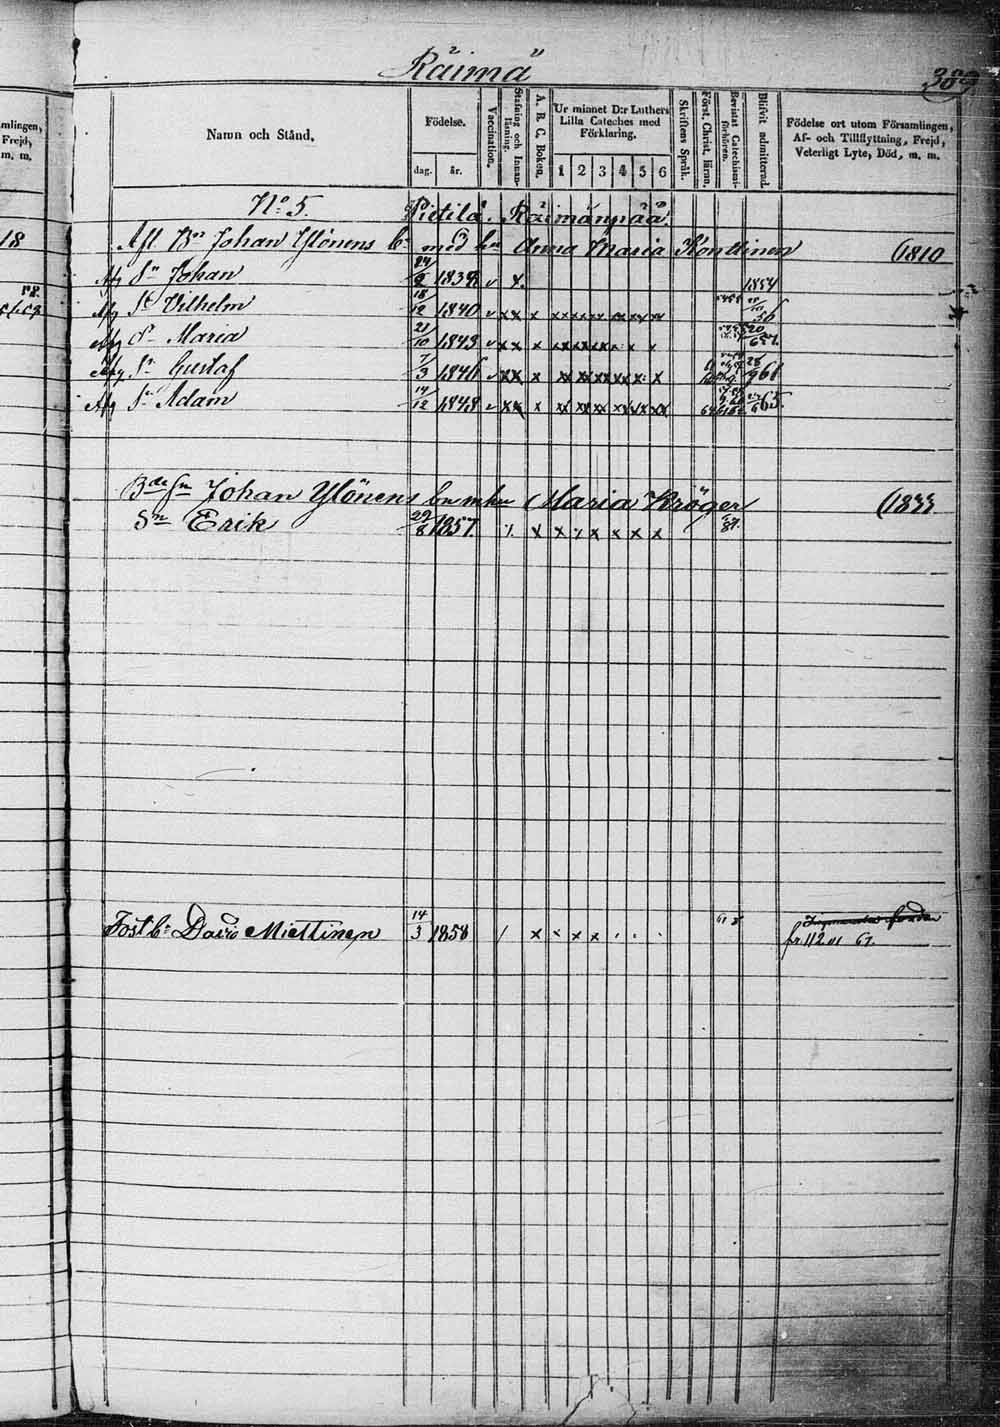 Räimä
309
mlingen,
Frejd,
m. m.
18
Namn och Stånd.
Födelse.
dag. år.
Vaccination.
Stafning och Innanläsning.
A. B. C. Boken.
Ur minnet D:r Luthers Lilla Cateches med Förklaring.
1 2 3 4 5 6
Skriftens Språk.
Först. Christ. läran.
Bevistat Catechismiförhören.
Blifvit admitterad.
Födelse ort utom Församlingen, Af- och Tillflyttning, Frejd, Veterligt Lyte, Död, m. m.
No 5. Pietilä. Räimänpää.
Afl Bn Johan Ylönens bn med hu Anna Maria Konttinen (1810
Afg Sn Johan 24/2 1838 v x. 1854
Afg Sn Vilhelm 18/12 1840 v x x x x x x x x x
Afg Dr Maria 21/10 1843 v x x x x x x x
Afg Sn Gustaf 7/3 1846 v x x x x x x x x x
Afg Sn Adam 14/12 1848 v x x x x x x x x x
Bde Sn Johan Ylönens bn m hu Maria Kröger (1833
Sn Erik 29/8 1857. x x x x x x x
Fost bn David Miettinen 14/3 1858 / x x x x
fr. 112 67.